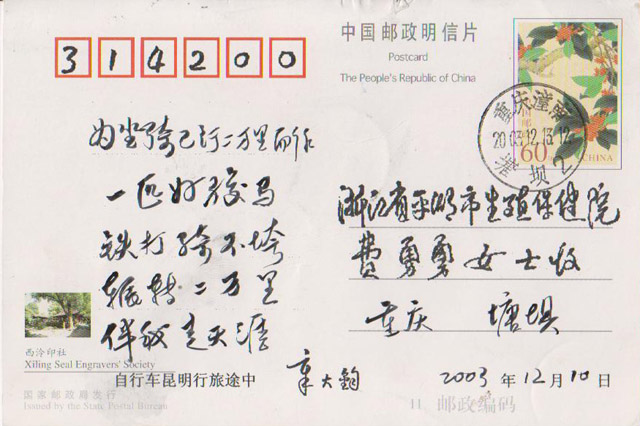 314200
中国邮政明信片
Postcard
The People's Republic of China
中国邮政
60
CHINA
重庆潼南
2003.12.13.12
塘坝 2
为坐骑已行二万里而作
一匹好骏马
铁打骑不垮
辗转二万里
伴我走天涯
浙江省平湖市生殖保健院
费勇勇女士收
重庆 塘坝
西泠印社
Xiling Seal Engravers' Society
自行车昆明行旅途中
章大钧
2003年12月10日
国家邮政局发行
Issued by the State Postal Bureau
邮政编码